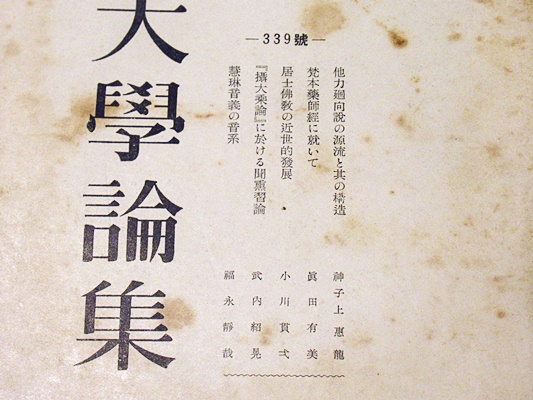 ―339號―
他力廻向説の源流と其の構造
神子上惠龍
梵本藥師經に就いて
眞田有美
居士佛敎の近世的發展
小川貫弌
『攝大乘論』に於ける聞熏習論
武内紹晃
慧琳音義の音系
福永靜哉
大學論集